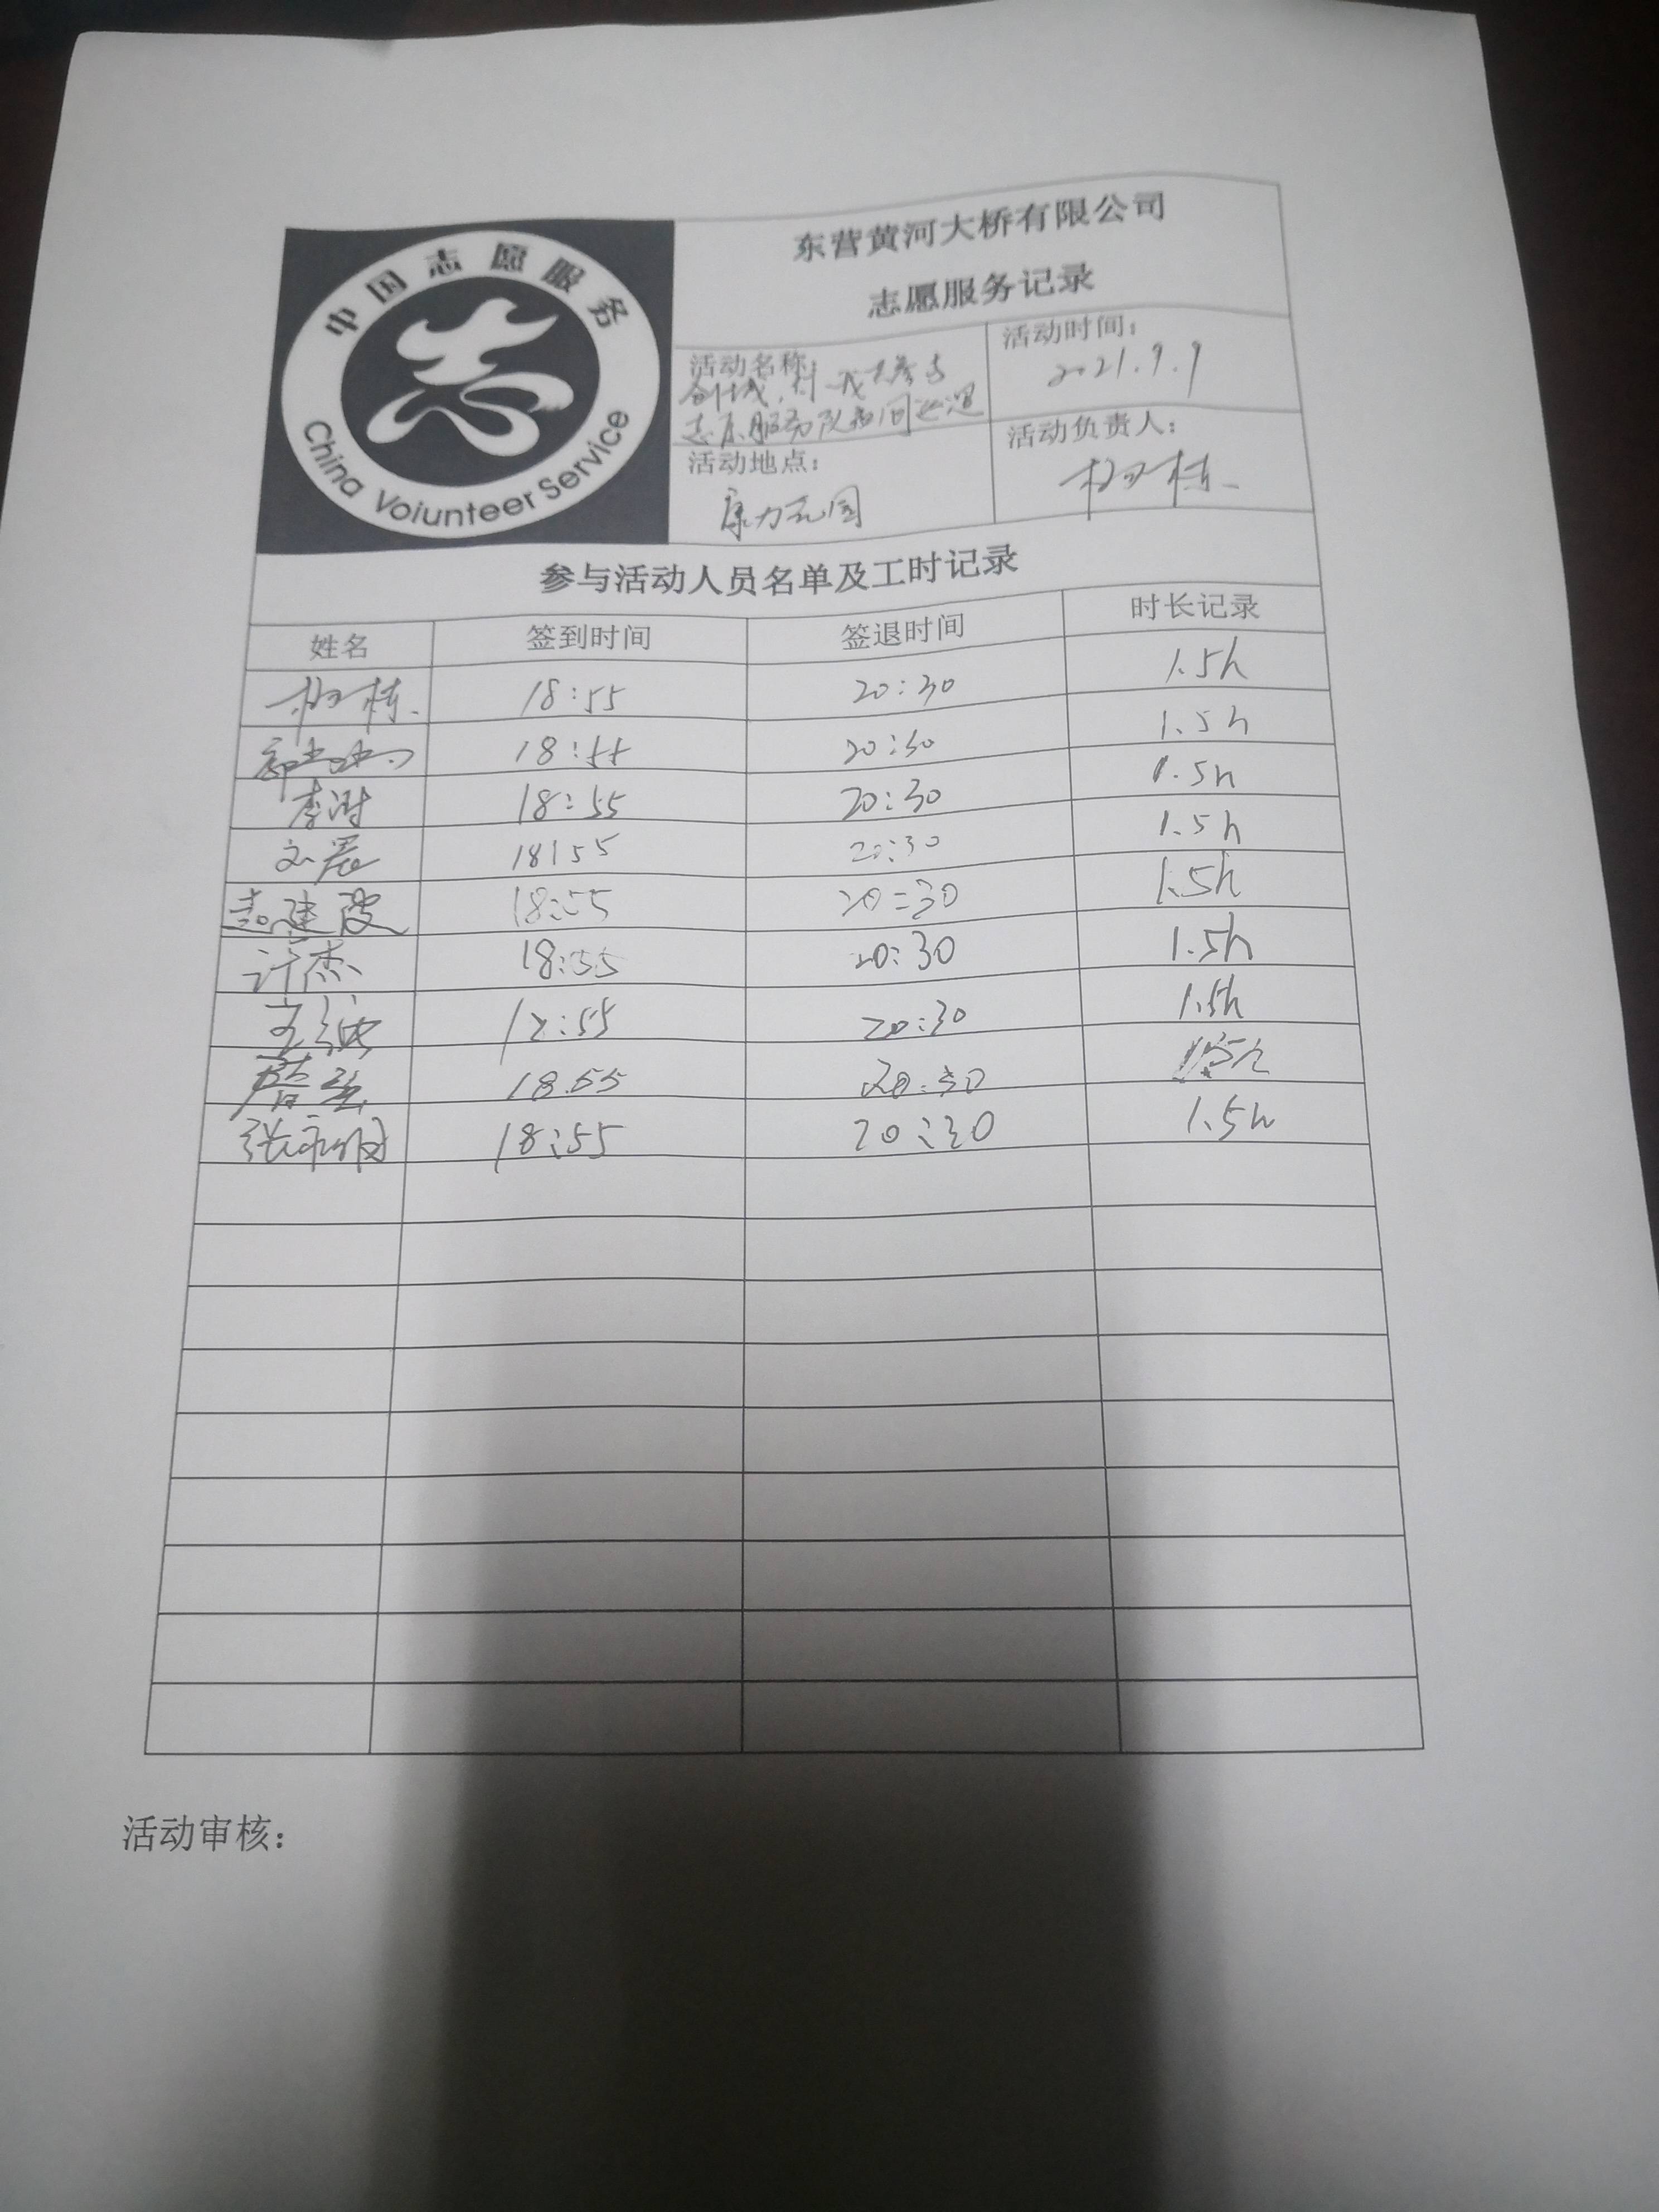 中国志愿服务
China Voiunteer Service
东营黄河大桥有限公司
志愿服务记录
活动名称:
创城,
志愿服务队夜间巡逻
活动时间:
2021.9.9
活动地点:
康力花园
活动负责人:
柳栋
参与活动人员名单及工时记录
姓名 签到时间 签退时间 时长记录
柳栋 18:55 20:30 1.5h
18:55 20:30 1.5h
李澍 18:55 20:30 1.5h
18:55 20:30 1.5h
18:55 20:30 1.5h
许杰 18:55 20:30 1.5h
18:55 20:30 1.5h
18:55 20:30 1.5h
18:55 20:30 1.5h
活动审核: